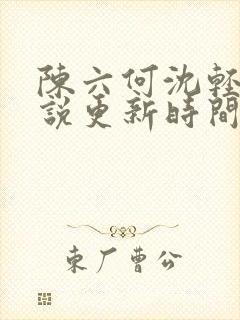 陳六何沈輕
説更新時間
東厂曹公